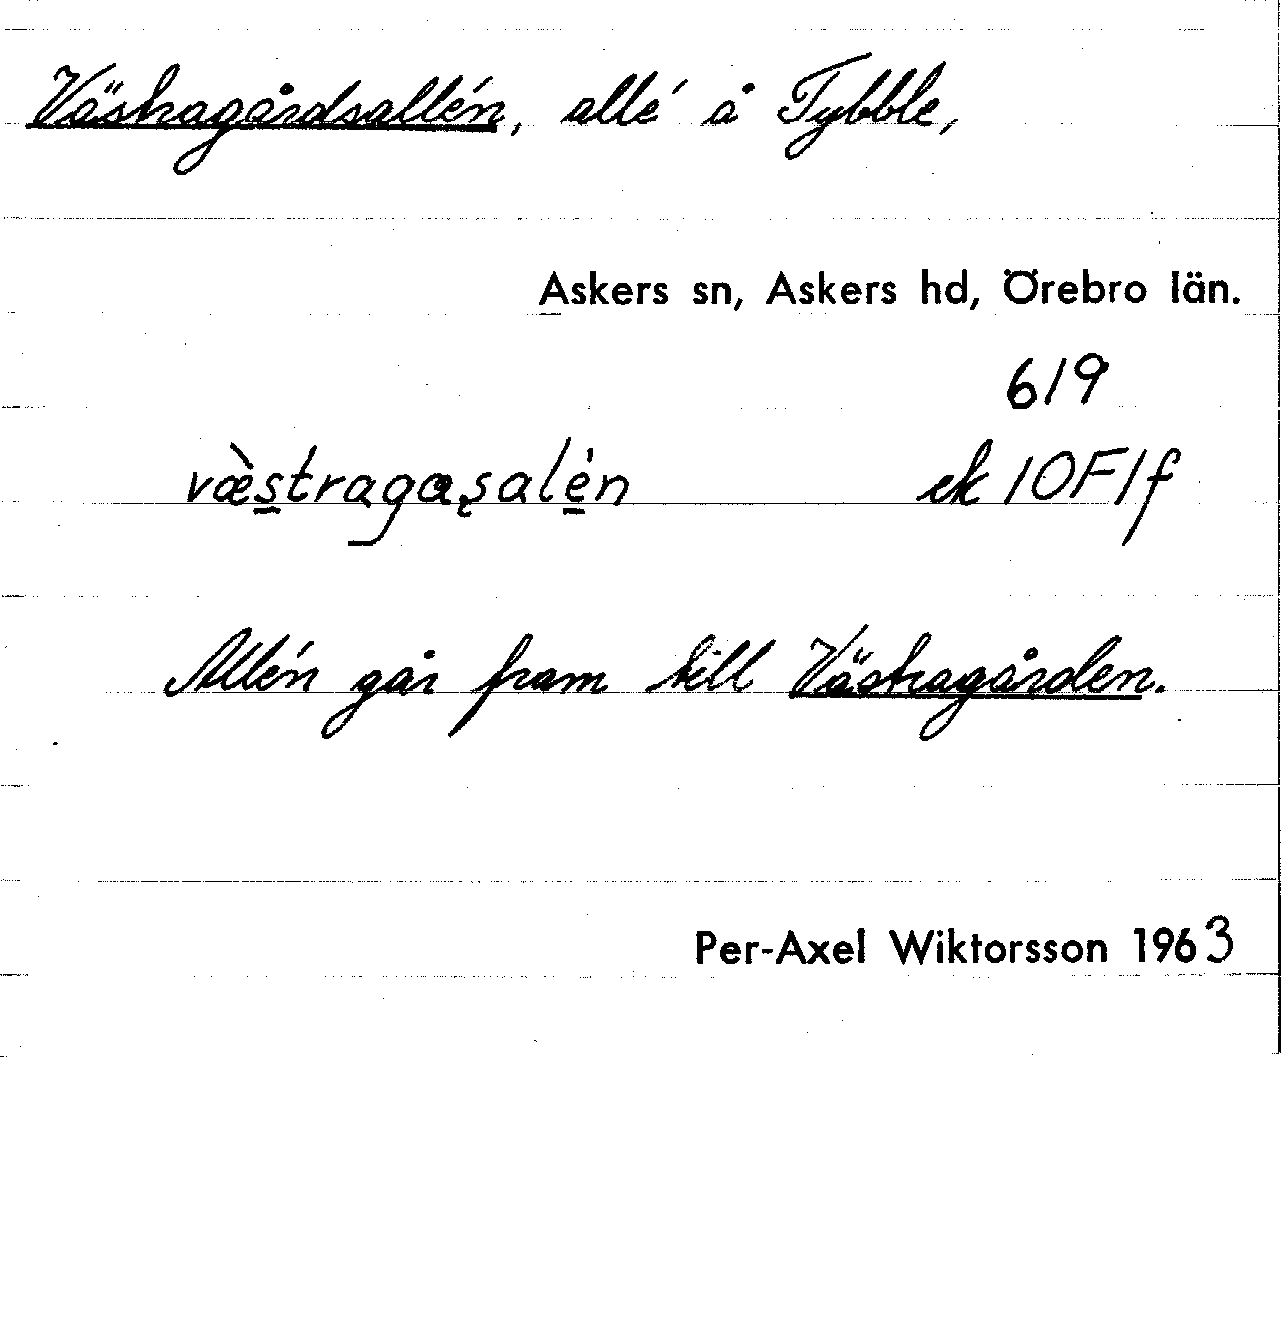 Västragårdsallén, allé å Tybble,
Askers sn, Askers hd, Örebro län.
6/9
væ̀stragaşalén ek 10F1f
Allén går fram till Västragården.
Per-Axel Wiktorsson 1963